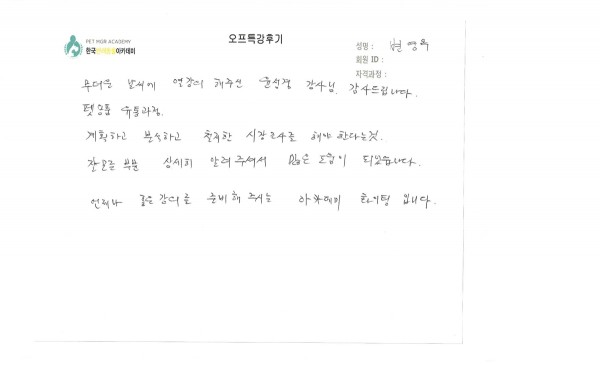 PET MGR ACADEMY
한국반려동물아카데미
오프특강후기
성명 : 변영옥
회원 ID :
자격과정 :
무더운 날씨에 열강의 해주신 윤선정 강사님. 감사드립니다.
펫용품 유통과정.
계획하고 분석하고 철저한 시장조사를 해야 한다는것.
잘모르는 부분 상세히 알려주셔서 많은 도움이 되었습니다.
언제나 좋은 강의를 준비해 주시는 아카데미 화이팅 입니다.